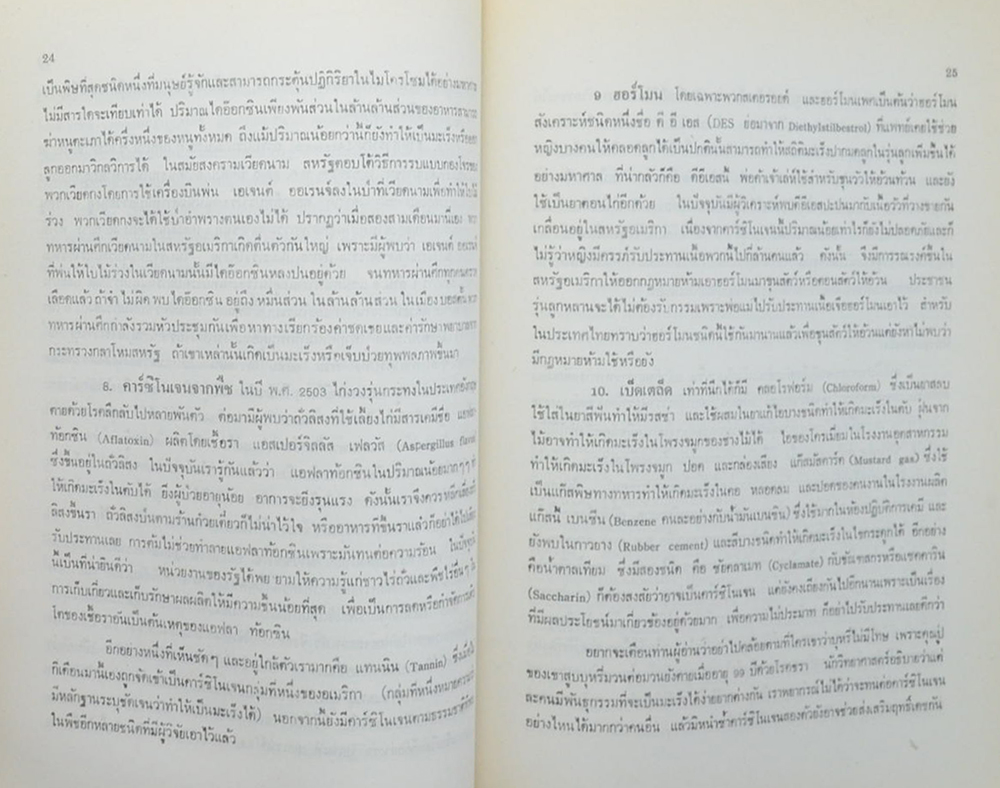 24
เป็นพิษที่สุดชนิดหนึ่งที่มนุษย์รู้จักและสามารถกระตุ้นปฏิกิริยาในไมโครโซมได้อย่าง
ไม่มีสารใดจะเทียบเท่าได้ ปริมาณไดอ๊อกซินเพียงพันส่วนในล้านล้านส่วนของอาหารสามารถ
ฆ่าหนูตะเภาได้ครึ่งหนึ่งของหนูทั้งหมด ถึงแม้ปริมาณน้อยกว่านี้ก็ยังทำให้เป็นมะเร็งหรือ
ลูกออกมาวิกลวิการได้ ในสมัยสงครามเวียดนาม สหรัฐตอบโต้วิธีการรบแบบกองโจรของ
พวกเวียดกงโดยการใช้เครื่องบินพ่น เอเจนต์ ออเรนจ์ลงในป่าที่เวียดนามเพื่อทำให้ใบไม้
ร่วง พวกเวียดกงจะได้ใช้ป่าอำพรางตนเองไม่ได้ ปรากฏว่าเมื่อสองสามเดือนมานี้เอง พวก
ทหารผ่านศึกเวียดนามในสหรัฐอเมริกาเกิดตื่นตัวกันใหญ่ เพราะมีผู้พบว่า เอเจนต์ ออเรนจ์
ที่พ่นให้ใบไม้ร่วงในเวียดนามนั้นมีไดอ๊อกซินหลงปนอยู่ด้วย จนทหารผ่านศึกทุกคนตรวจ
เลือดแล้ว ถ้าจำไม่ผิด พบไดอ๊อกซิน อยู่ถึง หมื่นส่วน ในล้านล้านส่วน ในเมืองบอสตั้น พวก
ทหารผ่านศึกกำลังรวมหัวประชุมกันเพื่อหาทางเรียกร้องค่าชดเชยและค่ารักษาพยาบาลจาก
กระทรวงกลาโหมสหรัฐ ถ้าเขาเหล่านั้นเกิดเป็นมะเร็งหรือเจ็บป่วยทุพพลภาพขึ้นมา
8. คาร์ซิโนเจนจากพืช ในปี พ.ศ. 2503 ไก่งวงรุ่นกระทงในประเทศอังกฤษ
ตายด้วยโรคลึกลับไปหลายพันตัว ต่อมามีผู้พบว่าถั่วลิสงที่ใช้เลี้ยงไก่มีสารเคมีชื่อ แอฟลา
ท้อกซิน (Aflatoxin) ผลิตโดยเชื้อรา แอสเปอร์จิลลัส เฟลวัส (Aspergillus flavus)
ซึ่งขึ้นอยู่ในถั่วลิสง ในปัจจุบันเรารู้กันแล้วว่า แอฟลาท้อกซินในปริมาณน้อยมากๆ
ให้เกิดมะเร็งในตับได้ ยิ่งผู้ป่วยอายุน้อย อาการจะยิ่งรุนแรง ดังนั้นเราจึงควรหลีกเลี่ยงถั่ว
ลิสงขึ้นรา ถั่วลิสงป่นตามร้านก๋วยเตี๋ยวก็ไม่น่าไว้ใจ หรืออาหารที่ขึ้นราแล้วก็อย่าได้ไป
รับประทานเลย การต้มไม่ช่วยทำลายแอฟลาท้อกซินเพราะมันทนต่อความร้อน ในปัจจุบัน
นี้เป็นที่น่ายินดีว่า หน่วยงานของรัฐได้พยายามให้ความรู้แก่ชาวไร่ถั่วและพืชไร่อื่นๆ ใน
การเก็บเกี่ยวและเก็บรักษาผลผลิตให้มีความชื้นน้อยที่สุด เพื่อเป็นการลดหรือกำจัดการเติบ
โตของเชื้อราอันเป็นต้นเหตุของแอฟลา ท้อกซิน
อีกอย่างหนึ่งที่เห็นชัดๆ และอยู่ใกล้ตัวเรามากคือ แทนนิน (Tannin) ซึ่ง
ก็เดือนมานี้เองถูกจัดเข้าเป็นคาร์ซิโนเจนกลุ่มที่หนึ่งของอเมริกา (กลุ่มที่หนึ่งหมายความว่า
มีหลักฐานระบุชัดเจนว่าทำให้เป็นมะเร็งได้) นอกจากนี้ยังมีคาร์ซิโนเจนตามธรรมชาติ
ในพืชอีกหลายชนิดที่มีผู้วิจัยเอาไว้แล้ว
25
๑ ฮอร์โมน โดยเฉพาะพวกสเตอรอยด์ และฮอร์โมนเพศเป็นต้นว่าฮอร์โมน
สังเคราะห์ชนิดหนึ่งชื่อ ดี อี เอส (DES ย่อมาจาก Diethylstilbestrol) ที่แพทย์เคยใช้ช่วย
หญิงบางคนให้คลอดลูกได้เป็นปกตินั้นสามารถทำให้สถิติมะเร็งปากมดลูกในรุ่นลูกเพิ่มขึ้นได้
อย่างมหาศาล ที่น่ากลัวก็คือ ดีอีเอสนี้ พ่อค้าเจ้าเล่ห์ใช้สำหรับขุนวัวให้อ้วนท้วน และยัง
ใช้เป็นยาตอนไก่อีกด้วย ในปัจจุบันมีผู้วิเคราะห์พบดีอีเอสปะปนมากับเนื้อวัวที่วางขายกัน
เกลื่อนอยู่ในสหรัฐอเมริกา เนื่องจากคาร์ซิโนเจนนี้ปริมาณน้อยเท่าไรก็ยังไม่ปลอดภัยและก็
ไม่รู้ว่าหญิงมีครรภ์รับประทานเนื้อพวกนี้ไปกี่ล้านคนแล้ว ดังนั้น จึงมีการรณรงค์ขึ้นใน
สหรัฐอเมริกาให้ออกกฎหมายห้ามเอาฮอร์โมนมาขุนสัตว์หรือตอนสัตว์ให้อ้วน ประชาชน
รุ่นลูกหลานจะได้ไม่ต้องรับกรรมเพราะพ่อแม่ไปรับประทานเนื้อเจือฮอร์โมนเอาไว้ สำหรับ
ในประเทศไทยทราบว่าฮอร์โมนชนิดนี้ใช้กันมานานแล้วเพื่อขุนสัตว์ให้อ้วนแต่ยังหาไม่พบว่า
มีกฎหมายห้ามใช้หรือยัง
10. เบ็ดเตล็ด เท่าที่นึกได้ก็มี คลอโรฟอร์ม (Chloroform) ซึ่งเป็นยาสลบ
ใช้ใส่ในยาสีฟันทำให้มีรสซ่า และใช้ผสมในยาแก้ไอบางชนิดทำให้เกิดมะเร็งในตับ ฝุ่นจาก
ไม้อาจทำให้เกิดมะเร็งในโพรงจมูกของช่างไม้ได้ ไอของโครเมี่ยมในโรงงานอุตสาหกรรม
ทำให้เกิดมะเร็งในโพรงจมูก ปอด และกล่องเสียง แก๊สมัสตาร์ด (Mustard gas) ซึ่งใช้
เป็นแก๊สพิษทางทหารทำให้เกิดมะเร็งในคอ หลอดลม และปอดของคนงานในโรงงานผลิต
แก๊สนี้ เบนซีน (Benzene คนละอย่างกับน้ำมันเบนซิน) ซึ่งใช้มากในห้องปฏิบัติการเคมี และ
ยังพบในกาวยาง (Rubber cement) และสีบางชนิดทำให้เกิดมะเร็งในไขกระดูกได้ อีกอย่าง
คือน้ำตาลเทียม ซึ่งมีสองชนิด คือ ซัยคลาเมท (Cyclamate) กับขัณฑสกรหรือแซคคาริน
(Saccharin) ก็ต้องสงสัยว่าอาจเป็นคาร์ซิโนเจน แต่ยังคงเถียงกันไปอีกนานเพราะเป็นเรื่อง
ที่มีผลประโยชน์มาเกี่ยวข้องอยู่ด้วยมาก เพื่อความไม่ประมาท ก็อย่าไปรับประทานเลยดีกว่า
อยากจะเตือนท่านผู้อ่านว่าอย่าไปคล้อยตามที่ใครเขาว่าบุหรี่ไม่มีโทษ เพราะคุณปู่
ของเขาสูบบุหรี่มวนต่อมวนยังตายเมื่ออายุ ๑๑ ปีด้วยโรคชรา นักวิทยาศาสตร์อธิบายว่าแต่
ละคนมีพันธุกรรมที่จะเป็นมะเร็งได้ง่ายยากต่างกัน เราพยากรณ์ไม่ได้ว่าจะทนต่อคาร์ซิโนเจน
อย่างไหนได้มากกว่าคนอื่น แล้วมิหนำซ้ำคาร์ซิโนเจนสองตัวยังอาจช่วยส่งเสริมฤทธิ์เดชกัน